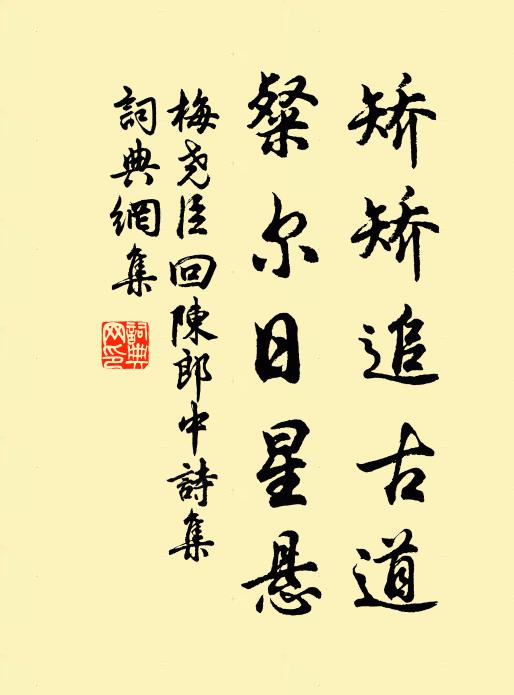 矫矫追古道
粲尔日星悬
梅尧臣回陳郎中詩集
詞典網集
詞典
网印